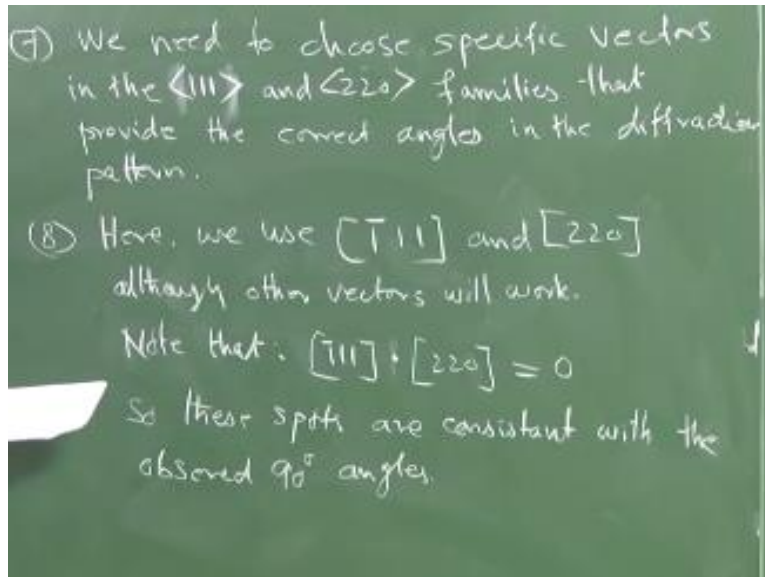 ⑦ We need to choose specific vectors
in the <111> and <220> families that
provide the correct angles in the diffraction
pattern.
⑧ Here, we use [1̅11] and [220]
although other vectors will work.
Note that: [1̅11] · [220] = 0
So these spots are consistant with the
obsered 90° angles.